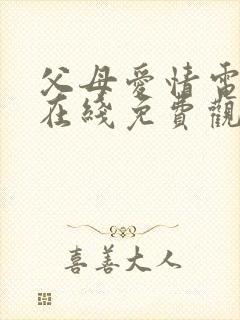 父母愛情電
在綫免費觀
喜善大人